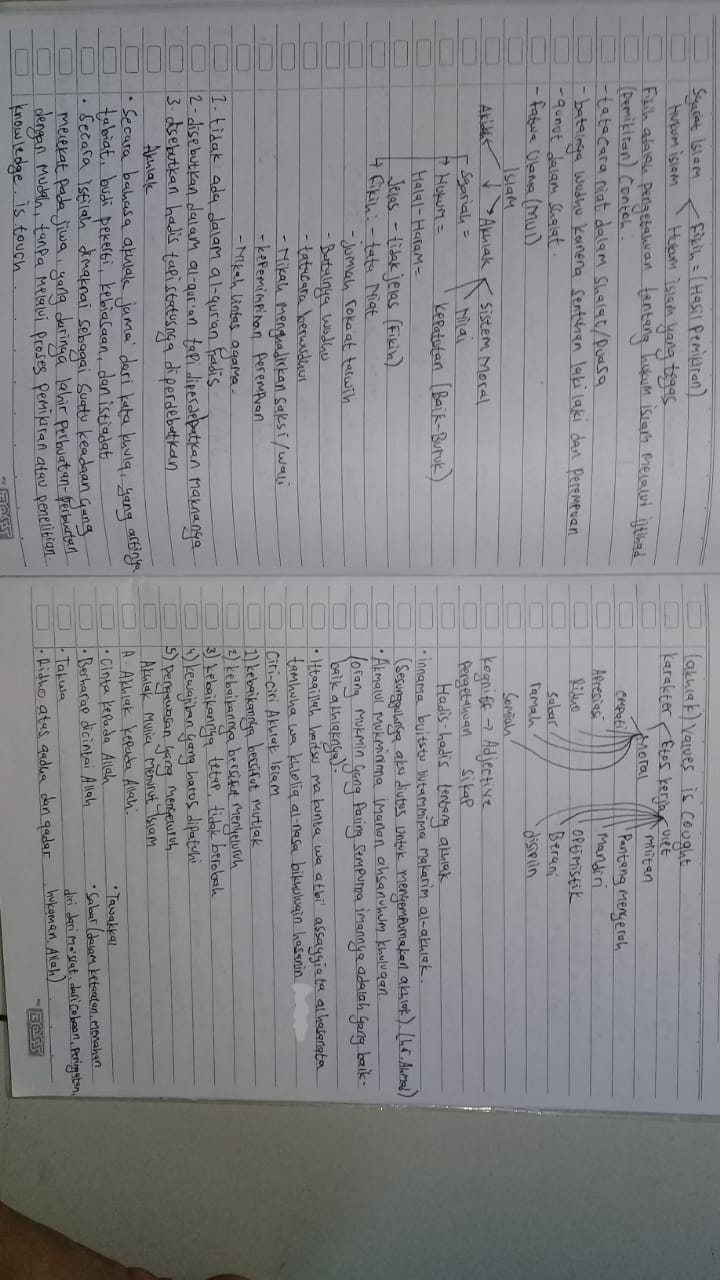 Syariat Islam
Hukum islam
Fikih = (Hasil pemikiran)
Hukum islam yang tegas
Fikih adalah pengetahuan tentang hukum islam melalui ijtihad
(pemikiran) Contoh:
- tata cara niat dalam Shalat/puasa
- batalnya wudhu karena sentuhan laki laki dan Perempuan
- qunut dalam shalat.
- fatwa Ulama (MUI)
Islam
Akidah
Akhlak
Sistem Moral
Nilai
Syariah =
Hukum =
Kepatutan (Baik-Buruk)
Halal-Haram =
Jelas - tidak jelas (Fikih)
Fikih: - tata Niat
- Jumlah rokaat tarwih
- Batalnya wudhu
- tatacara berwudhu
- Nikah menghadirkan saksi/wali
- kepemimpinan Perempuan
- Nikah lintas agama.
1. tidak ada dalam al-qur'an hadis
2. disebutkan dalam al-qur'an tapi diperdebatkan maknanya
3. disebutkan hadis tapi statusnya diperdebatkan
Akhlak
• Secara bahasa akhlak jamai dari kata khulq, yang artinya
tabiat, budi pekerti, kebiasaan, dan istiadat
• Secara istilah dimaknai sebagai suatu keadaan yang
melekat pada jiwa, yang darinya lahir perbuatan-perbuatan
dengan mudah, tanpa melalui proses pemikiran atau penelitian.
knowledge is touch
(akhlak) Values is cought
Karakter
Etos kerja
Moral
empati
Apresiasi
Ridho
sabar
ramah
ulet
militan
Pantang mengerah
Mandiri
Optimistik
Berani
disiplin
Kognitif → Adjective
pengetahuan sikap
Hadis-hadis tentang akhlak
• innama buitstu liutammima makarim al-akhlak.
(Sesungguhnya aku diutus untuk menyempurnakan akhlak) (hr. Ahmad)
• Akmalul mukminina imanan ahsanuhum khuluqan
(orang mukmin yang Paling sempurna imannya adalah yang baik-
baik akhlaknya).
• Ittaqillah haitsu ma kunta wa atbi assayyiata al hasanata
tamhuha wa kholiq al-nasa bikhuluqin hasanin
Ciri-ciri Akhlak Islam
1) kebaikannya bersifat mutlak
2) kebaikannya bersifat menyeluruh
3) kebaikannya tetap, tidak berobah
4) kewajiban yang harus dipatuhi
5) pengawasan yang menyeluruh
Akhlak Mulia menurut Islam
A. Akhlak kepada Allah:
• Cinta kepada Allah
• Berharap dicintai Allah
• Takwa
• Ridho atas qadha dan qadar
• Tawakkal
• Sabar (dalam ketaatan, menahan
diri dari maksiat, dari cobaan,
hukuman Allah)